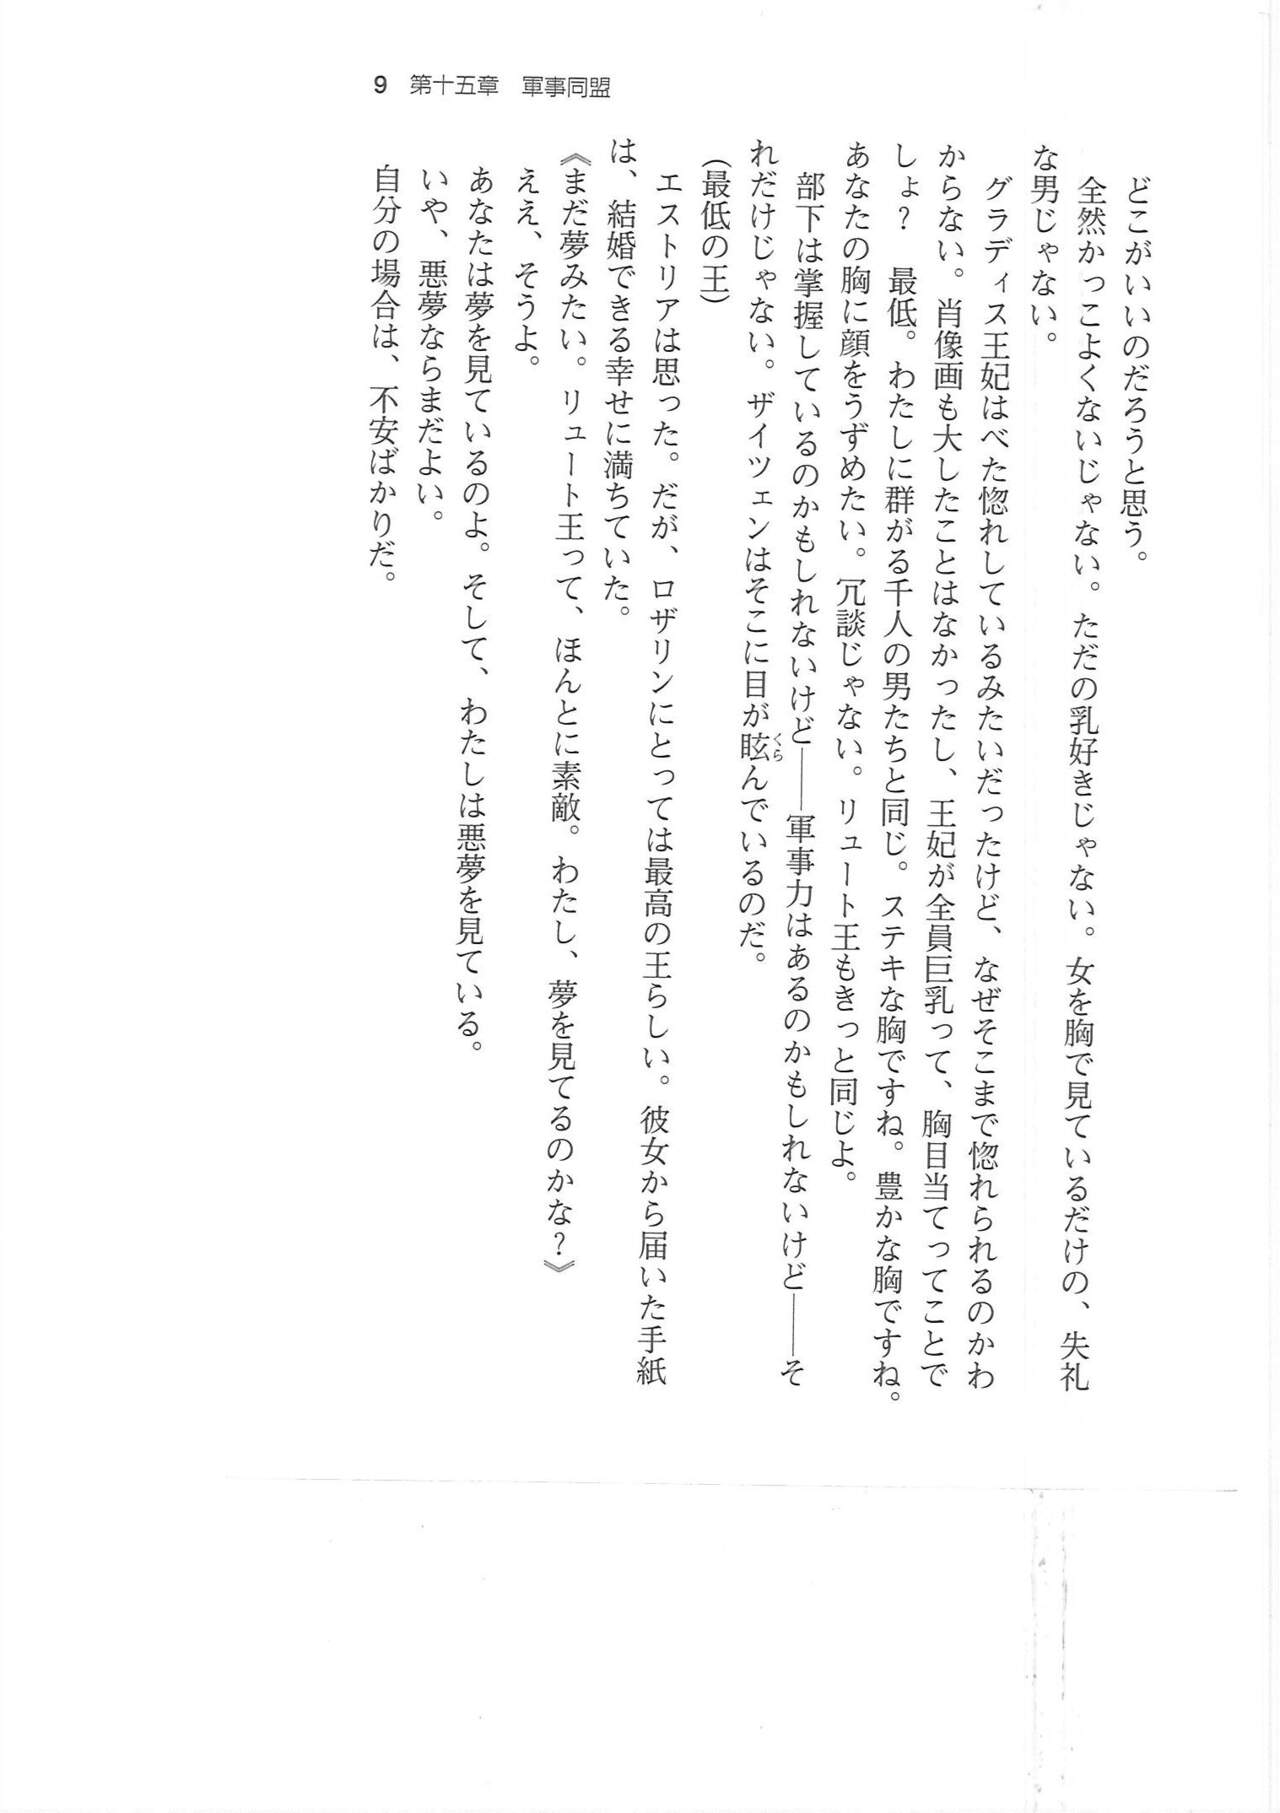 9 第十五章 軍事同盟
どこがいいのだろうと思う。
全然かっこよくないじゃない。ただの乳好きじゃない。女を胸で見ているだけの、失礼
な男じゃない。
グラディス王妃はべた惚れしているみたいだったけど、なぜそこまで惚れられるのかわ
からない。肖像画も大したことはなかったし、王妃が全員巨乳って、胸目当てってことで
しょ？　最低。わたしに群がる千人の男たちと同じ。ステキな胸ですね。豊かな胸ですね。
あなたの胸に顔をうずめたい。冗談じゃない。リュート王もきっと同じよ。
部下は掌握しているのかもしれないけど――軍事力はあるのかもしれないけど――そ
れだけじゃない。ザイツェンはそこに目が眩んでいるのだ。
くら
（最低の王）
エストリアは思った。だが、ロザリンにとっては最高の王らしい。彼女から届いた手紙
は、結婚できる幸せに満ちていた。
《まだ夢みたい。リュート王って、ほんとに素敵。わたし、夢を見てるのかな？》
ええ、そうよ。
あなたは夢を見ているのよ。そして、わたしは悪夢を見ている。
いや、悪夢ならまだよい。
自分の場合は、不安ばかりだ。